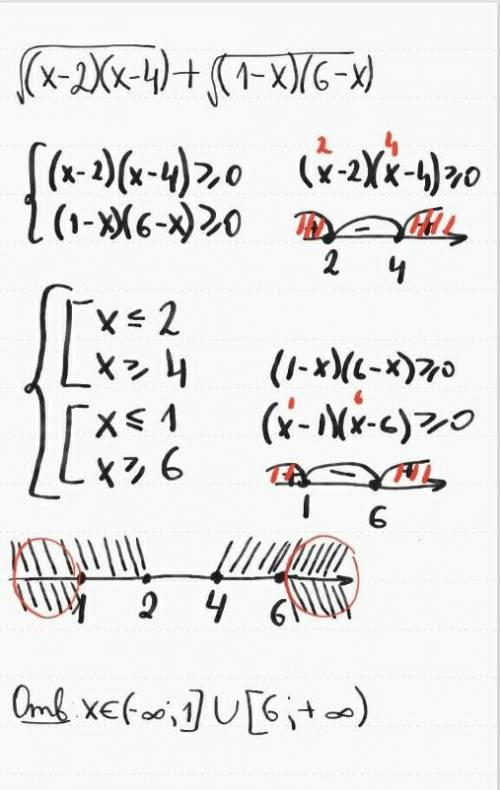 √(x-2)(x-4) + √(1-x)(6-x)
(x-2)(x-4)⩾0
(1-x)(6-x)⩾0
2 4
(x-2)(x-4)⩾0
+ - +
2 4
x ≤ 2
x ⩾ 4
x ≤ 1
x ⩾ 6
(1-x)(6-x)⩾0
1 6
(x-1)(x-6)⩾0
+ - +
1 6
1 2 4 6
Отв: x∈(-∞;1]∪[6;+∞)